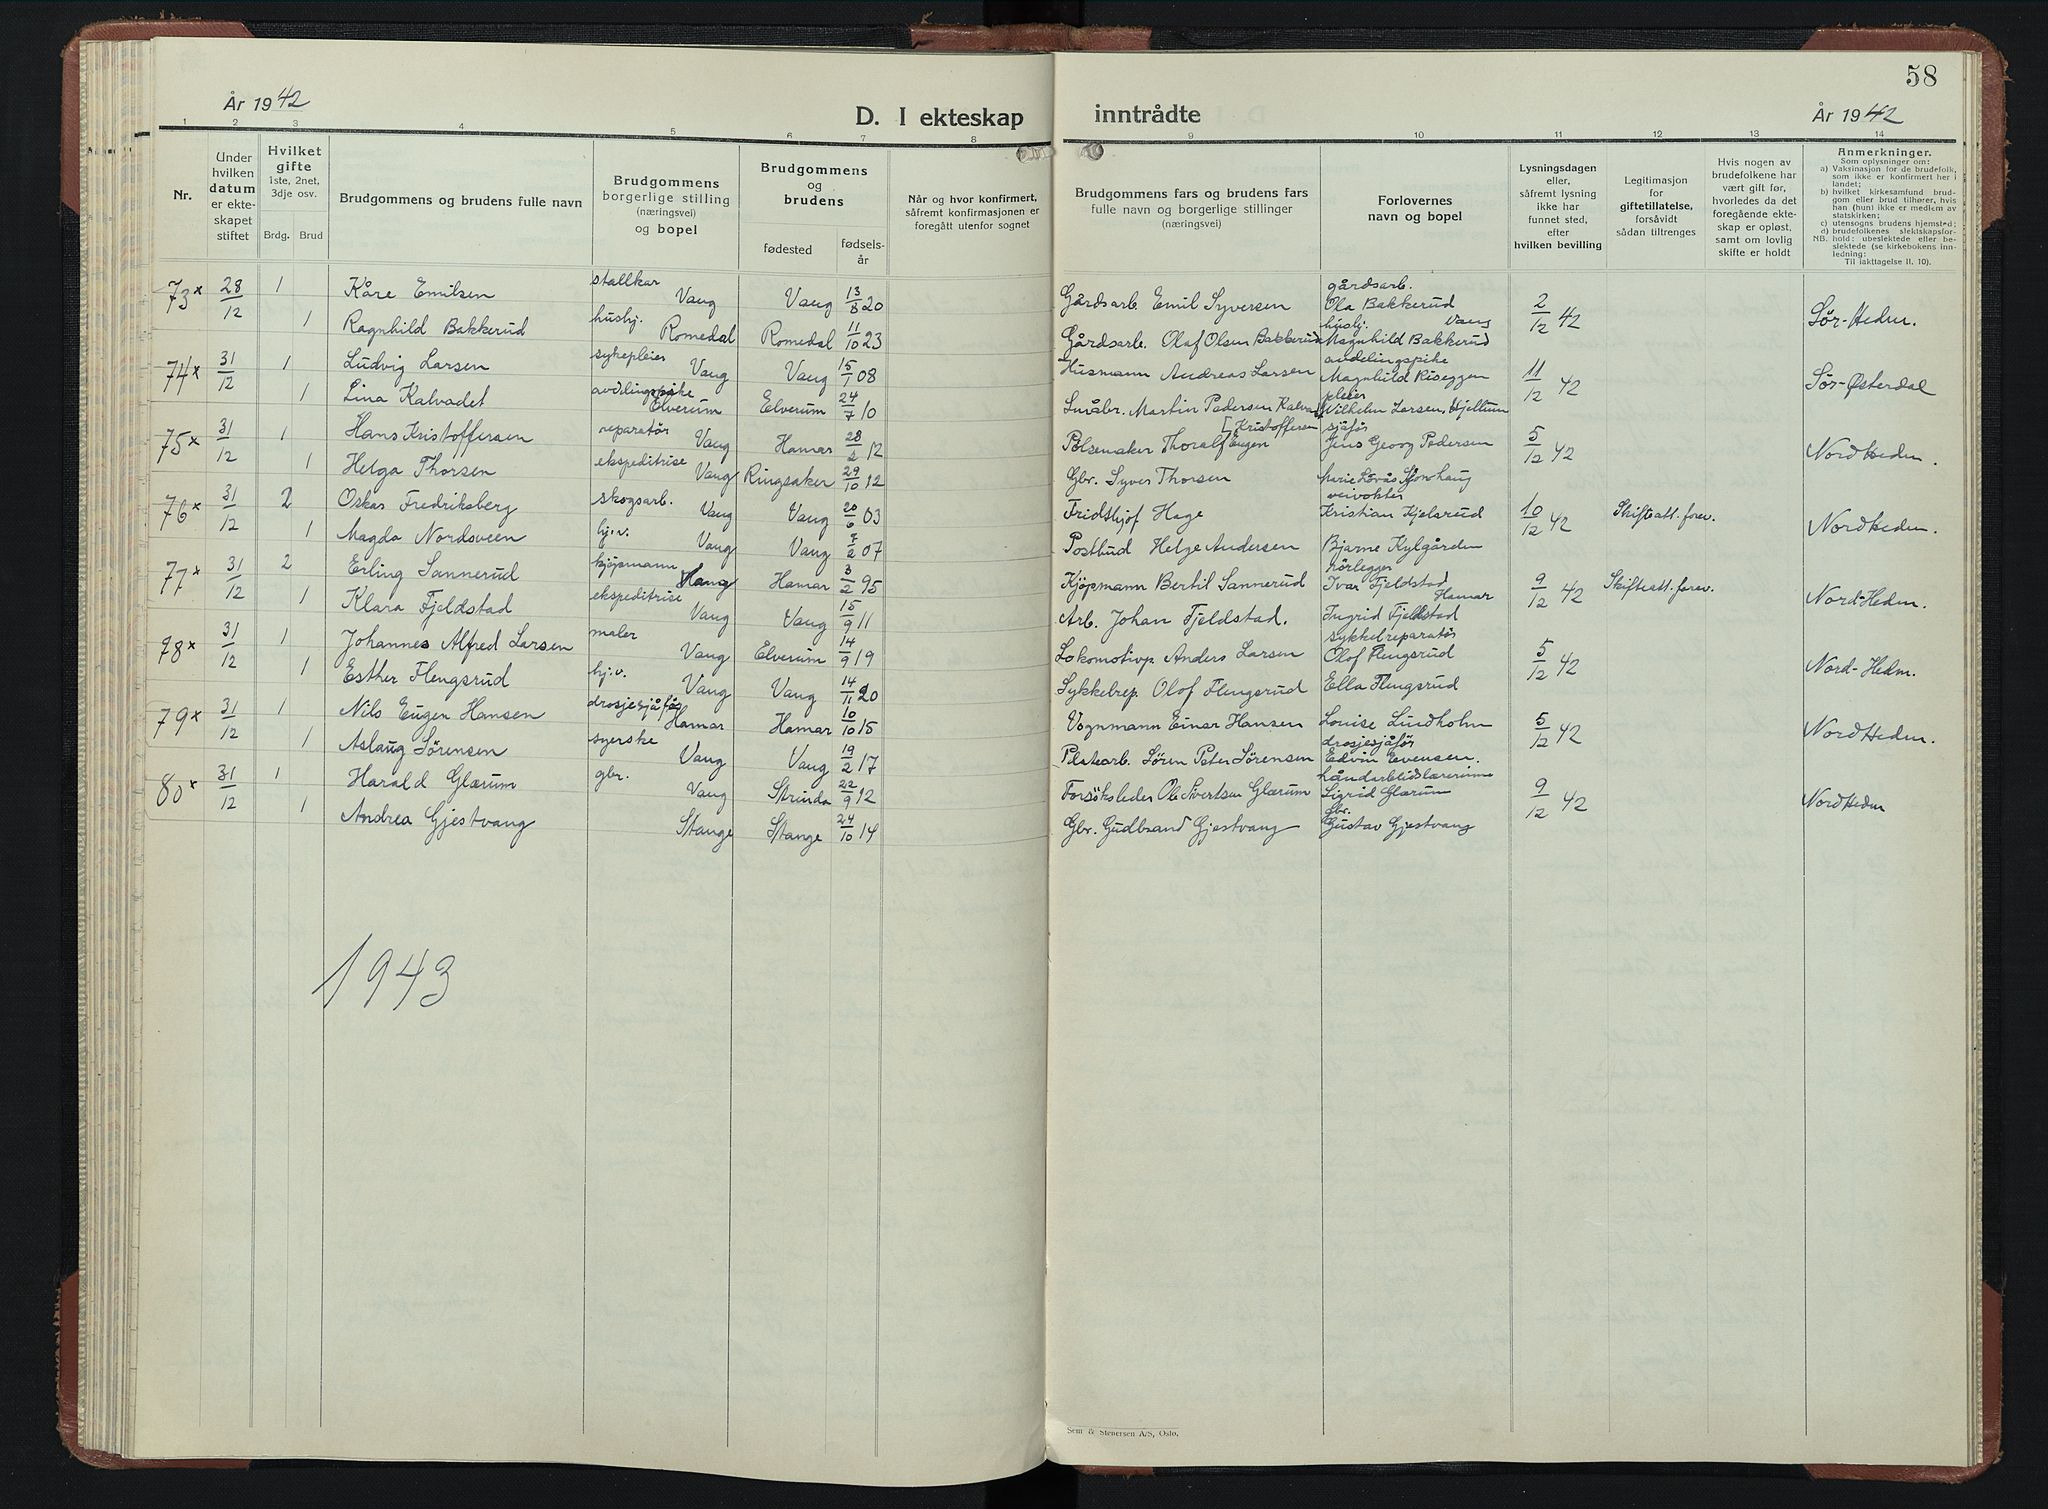 58
År 1942
D. I ekteskap inntrådte
År 1942
1 2 3 4 5 6 7 8 9 10 11 12 13 14
Nr.
Under hvilken datum er ekteskapet stiftet
Hvilket gifte 1ste, 2net, 3dje osv.
Brdg. Brud
Brudgommens og brudens fulle navn
Brudgommens borgerlige stilling (næringsvei) og bopel
Brudgommens og brudens
fødested
fødselsår
Når og hvor konfirmert, såfremt konfirmasjonen er foregått utenfor sognet
Brudgommens fars og brudens fars fulle navn og borgerlige stillinger (næringsvei)
Forlovernes navn og bopel
Lysningsdagen eller, såfremt lysning ikke har funnet sted, efter hvilken bevilling
Legitimasjon for giftetillatelse, forsåvidt sådan tiltrenges
Hvis nogen av brudefolkene har vært gift før, hvorledes da det foregående ekteskap er opløst, samt om lovlig skifte er holdt
Anmerkninger.
Som oplysninger om:
a) Vaksinasjon for de brudefolk, som ikke er konfirmert her i landet;
b) hvilket kirkesamfund brudgom eller brud tilhører, hvis han (hun) ikke er medlem av statskirken;
c) utensogns brudens hjemsted;
d) brudefolkenes slektskapsforhold: ubeslektede eller beslektede (se kirkebokens innledning;
NB. Til iakttagelse II. 10).
73 x 28/12 1 Kåre Emilsen stallkar Vang Vang 13/8 20 Gårdsarb. Emil Syversen gårdsarb. Ola Bakkerud Vang 2/12 42 Sør-Hedm.
1 Ragnhild Bakkerud hushj. Romedal Romedal 11/10 23 Gårdsarb. Olaf Olsen Bakkerud hushj. Magnhild Bakkerud
74 x 31/12 1 Ludvig Larsen sykepleier Vang Vang 15/1 08 Husmann Andreas Larsen avdelingspike Magnhild Riseggen 11/12 42 Sør-Østerdal
1 Lina Kalvadet avdlingspike Elverum Elverum 24/7 10 Småbr. Martin Pedersen pleier Wilhelm Larsen, Hjellum
75 x 31/12 1 Hans Kristoffersen reparatør Vang Hamar 28/2 12 Pølsemaker Thoralf Eugen [Kristoffersen sjåfør Jens Georg Pedersen 5/12 42 Nord Hedm.
1 Helga Thorsen ekspeditrise Vang Ringsaker 29/10 12 Gbr. Syver Thorsen Marie
76 x 31/12 2 Oskar Fredriksberg skogsarb. Vang Vang 20/6 03 Fridthjof Hage veivokter Kristian Kjelsrud 10/12 42 Skifteatt. forev. Nord Hedm.
1 Magda Nordsveen hj.v. Vang Vang 7/2 07 Postbud Helge Andersen Bjarne Kylgården
77 x 31/12 2 Erling Sannerud kjøpmann Vang Hamar 3/2 95 Kjøpmann Bertil Sannerud rørlegger Ivar Fjeldstad Hamar 9/12 42 Skifteatt. forev. Nord-Hedm.
1 Klara Fjeldstad ekspeditrise Vang Vang 15/9 11 Arb. Johan Fjeldstad. Ingrid Fjeldstad
78 x 31/12 1 Johannes Alfred Larsen maler Vang Elverum 14/9 19 Lokomotivp. Anders Larsen sykkelreparatør Olof Flengsrud 5/12 42 Nord-Hedm.
1 Esther Flengsrud hj.v. Vang Vang 14/11 20 Sykkelrep. Olof Flengsrud Ella Flengsrud
79 x 31/12 1 Nils Eugen Hansen drosjesjåfør Hamar Hamar 10/10 15 Vognmann Einar Hansen Louise Lindholm 5/12 42 Nord Hedm.
1 Aslaug Sørensen syerske Vang Vang 19/2 17 Platearb. Søren Peter Sørensen drosjesjåfør Edvin Evensen.
80 x 31/12 1 Harald Glærum gbr. Vang Strinda 22/9 12 Forsøksleder Ole Sivertsen Glærum håndarbeidslærerinne Sigrid Glærum 9/12 42 Nord Hedm
1 Andrea Gjestvang Stange Stange 24/10 14 Gbr. Gudbrand Gjestvang Gbr. Gustav Gjestvang
1943
Sem & Stenersen A/S, Oslo.